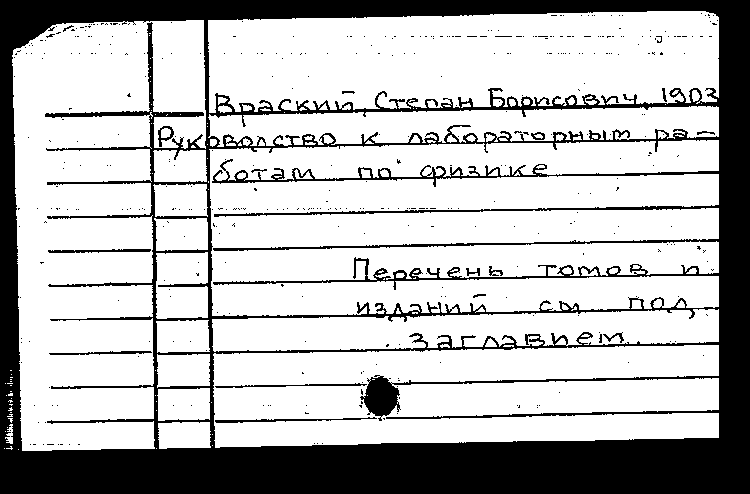 Враский, Степан Борисович, 1903
Руководство к лабораторным ра-
ботам по физике
Перечень томов и
изданий см под
заглавием.